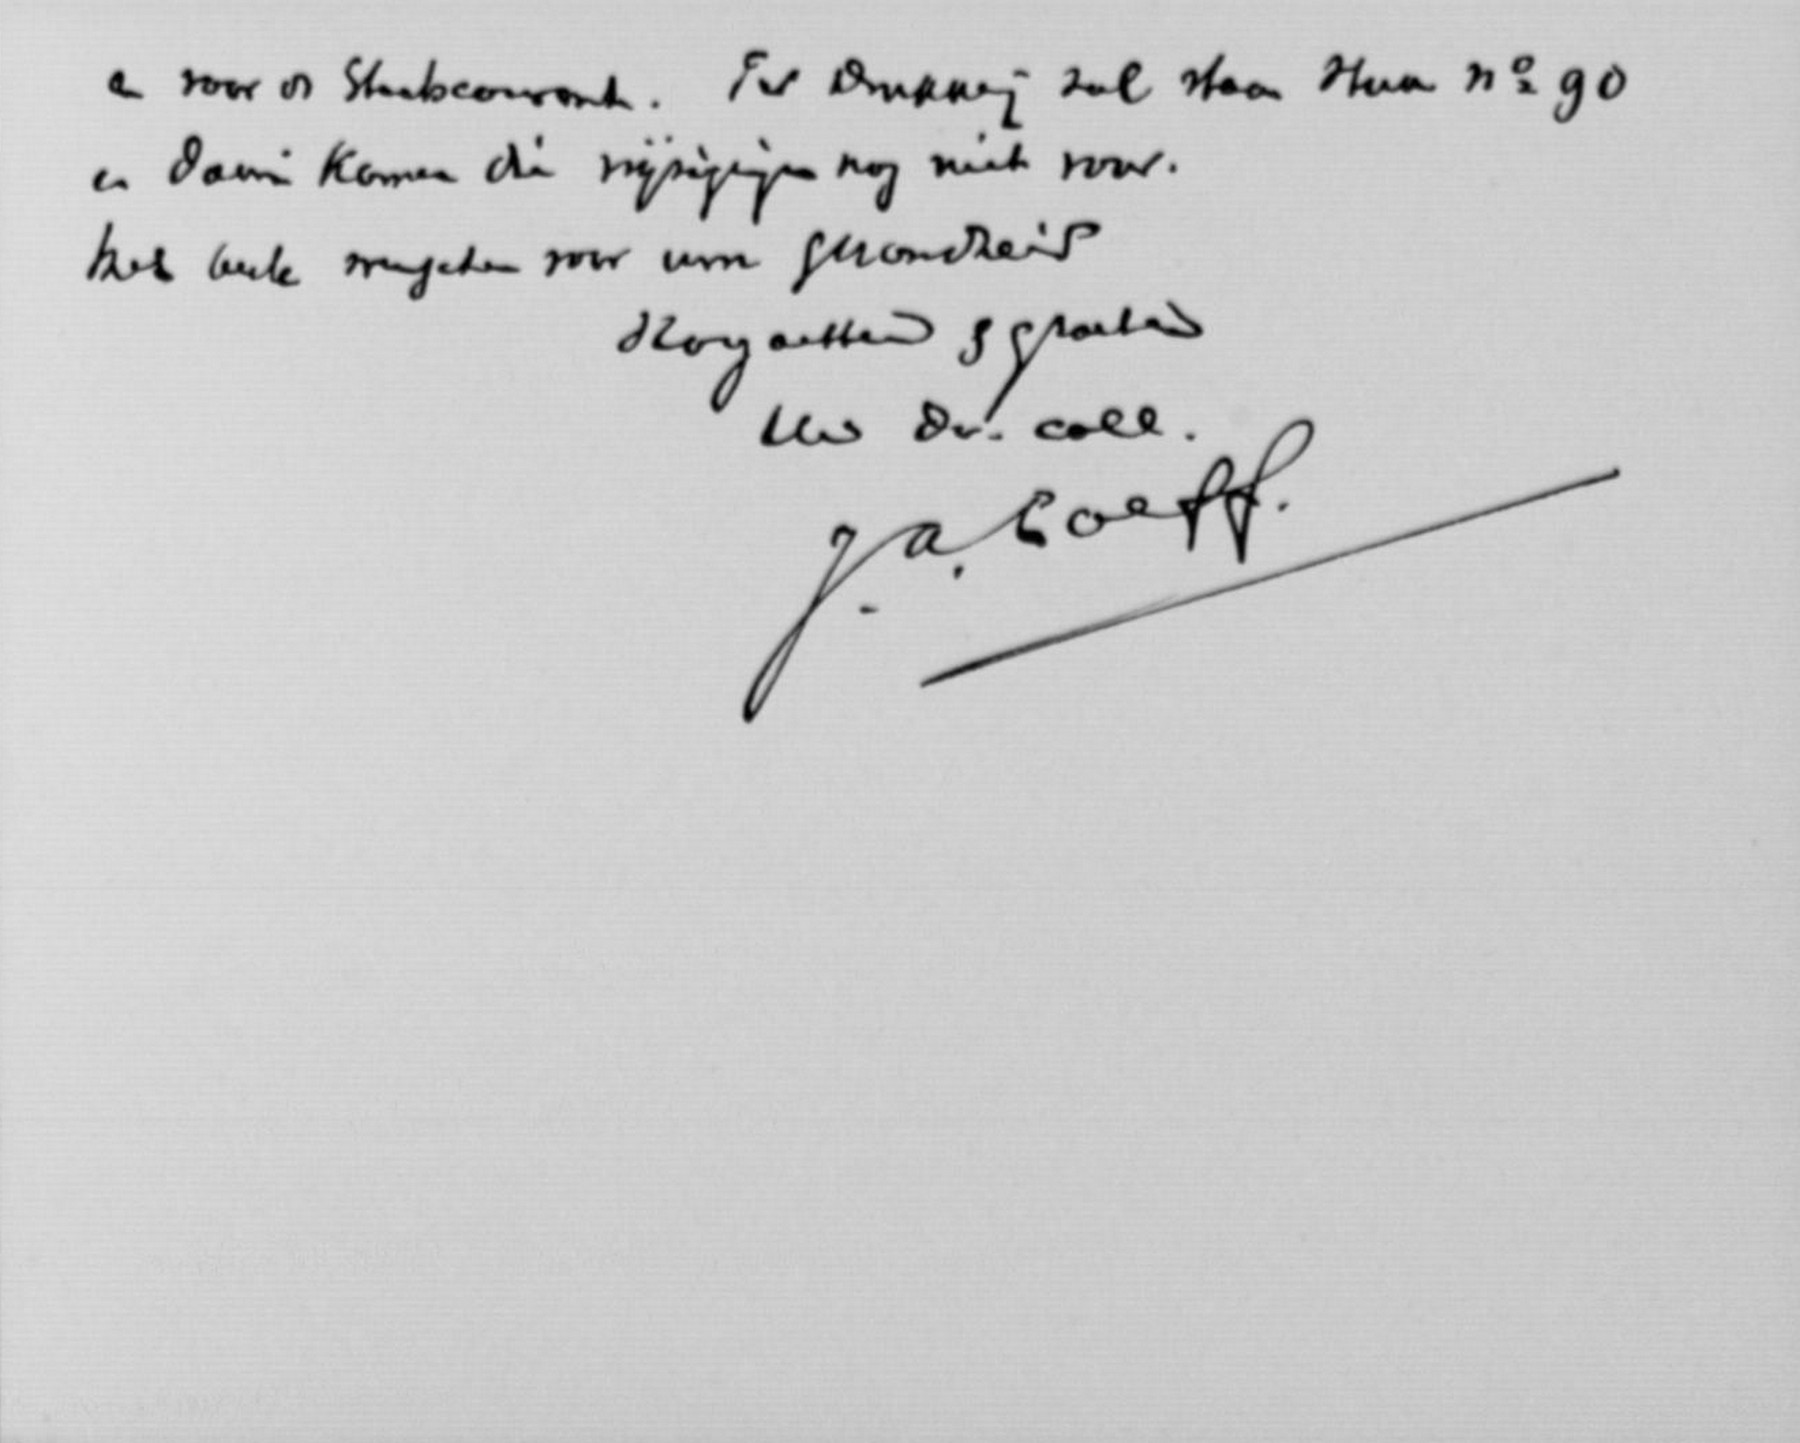 en voor de Staatscourant. Ter Drukkerij zal staan Stuk nº 90
en daarin komen die wijzigingen nog niet voor.
Met beste wenschen voor uwe gezondheid
Hoogachtend & groetend
Uw Dv. coll.
J. A. Loeff.